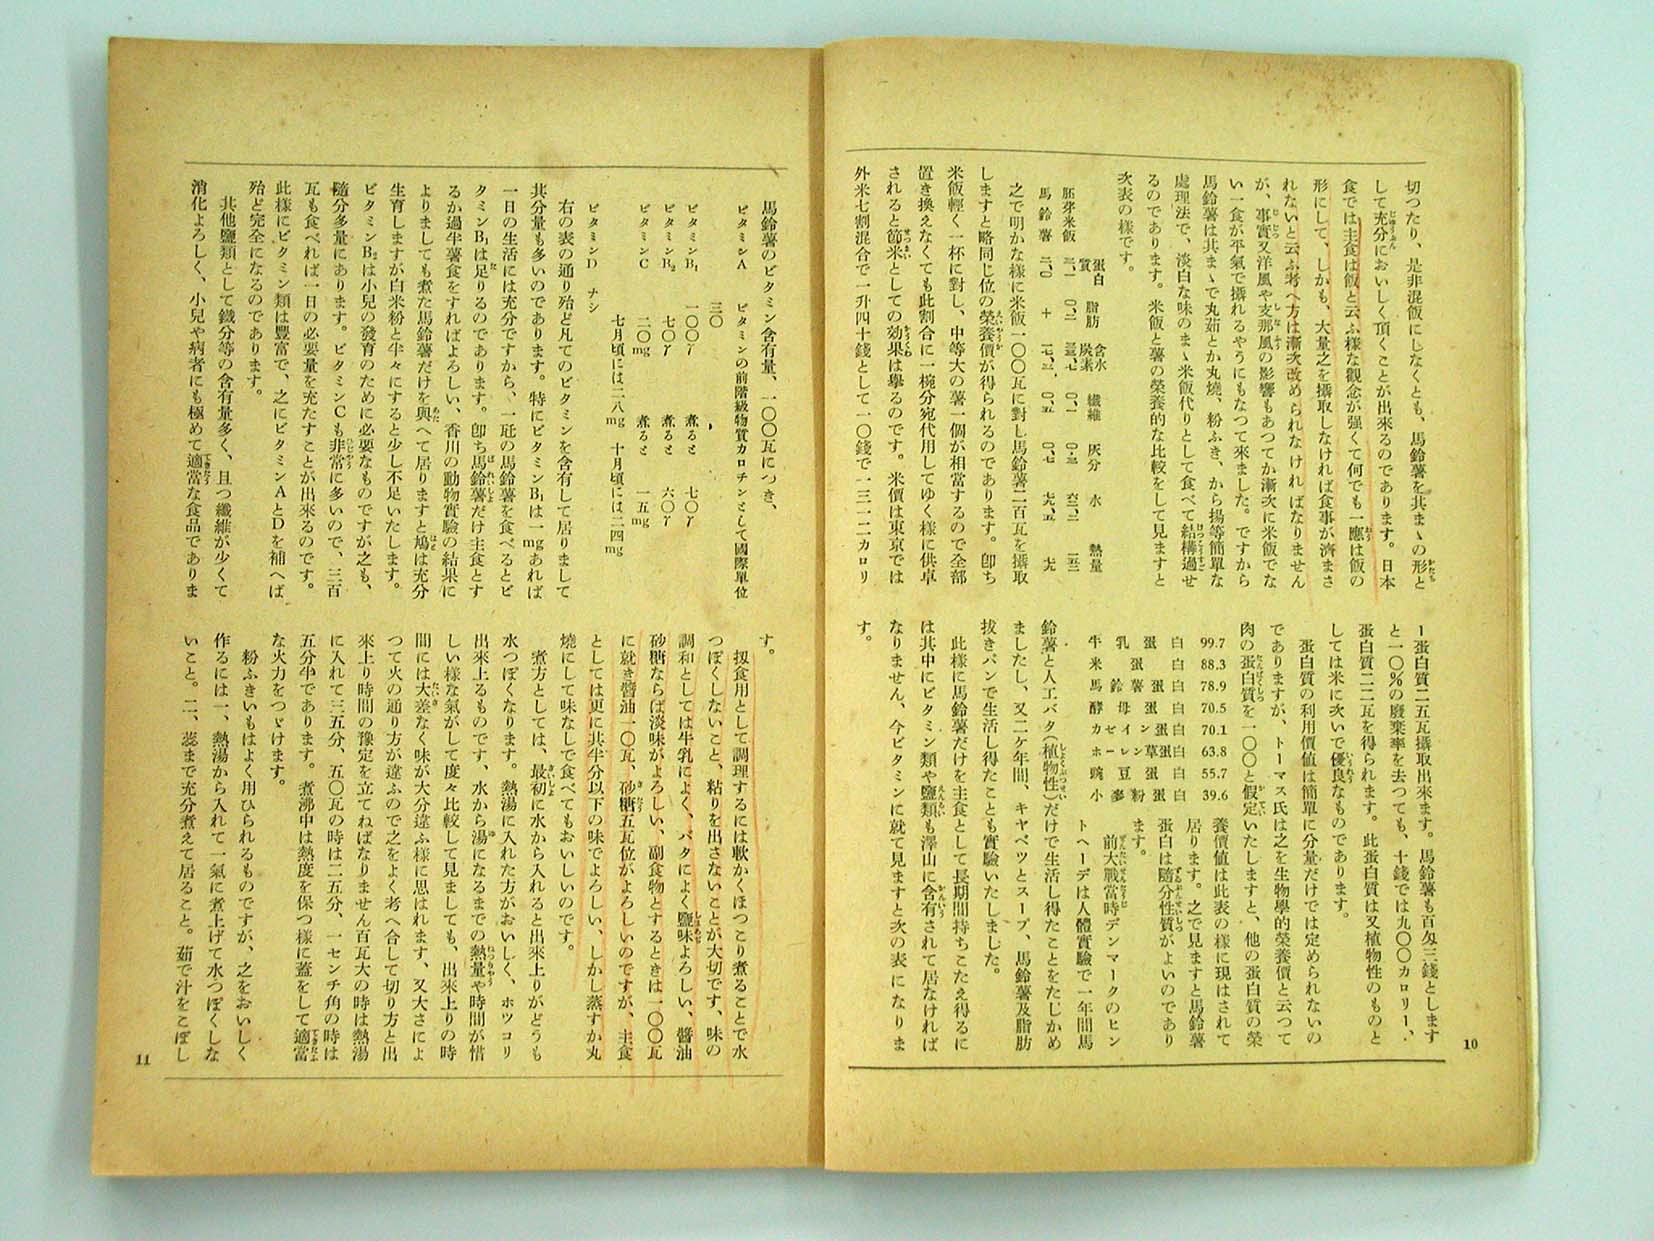 切つたり、是非混飯にしなくとも、馬鈴薯を其まゝの形と
して充分においしく頂くことが出來るのであります。日本
食では主食は飯と云ふ樣な觀念が强くて何でも一應は飯の
形にして、しかも、大量之を攝取しなければ食事が濟まさ
れないと云ふ考へ方は漸次改められなければなりません
が、事實又洋風や支那風の影響もあつてか漸次に米飯でな
い一食が平氣で攝れるやうにもなつて來ました。ですから
馬鈴薯は其まゝで丸茹とか丸燒、粉ふき、から揚等簡單な
處理法で、淡白な味のまゝ米飯代りとして食べて結構過せ
るのであります。米飯と薯の榮養的な比較をして見ますと
次表の樣です。
蛋白質 脂肪 含水炭素 纖維 灰分 水 熱量
胚芽米飯
馬鈴薯 二、〇 +
之で明かな樣に米飯一〇〇瓦に對し馬鈴薯二百瓦を攝取
しますと略同じ位の榮養價が得られるのであります。卽ち
米飯輕く一杯に對し、中等大の薯一個が相當するので全部
置き換えなくても此割合に一椀分宛代用してゆく樣に供卓
されると節米としての効果は擧るのです。米價は東京では
外米七割混合で一升四十錢として一〇錢で一三一二カロリ
ー蛋白質二五瓦攝取出來ます。馬鈴薯も百匁三錢とします
と一〇%の廢棄率を去つても、十錢では九〇〇カロリー、
蛋白質二二瓦を得られます。此蛋白質は又植物性のものと
しては米に次いで優良なものであります。
蛋白質の利用價値は簡單に分量だけでは定められないの
でありますが、トーマス氏は之を生物學的榮養價と云つて
肉の蛋白質を一〇〇と假定いたしますと、他の蛋白質の榮
養價値は此表の樣に現はされて
居ります。之で見ますと馬鈴薯
蛋白は隨分性質がよいのであり
ます。
牛乳蛋白 99.7
米蛋白 88.3
馬鈴薯蛋白 78.9
酵母蛋白 70.5
カゼイン蛋白 70.1
ホーレン草蛋白 63.8
豌豆蛋白 55.7
小麥粉蛋白 39.6
前大戰當時デンマークのヒン
トヘーデは人體實驗で一年間馬
鈴薯と人工バタ(植物性)だけで生活し得たことをたしかめ
ましたし、又二ケ年間、キヤベツとスープ、馬鈴薯及脂肪
拔きパンで生活し得たことも實驗いたしました。
此樣に馬鈴薯だけを主食として長期間持ちこたえ得るに
は其中にビタミン類や鹽類も澤山に含有されて居なければ
なりません、今ビタミンに就て見ますと次の表になりま
す。
10
馬鈴薯のビタミン含有量、一〇〇瓦につき、
ビタミンA ビタミンの前階級物質カロチンとして國際單位
三〇
ビタミンB₁ 一〇〇γ 煮ると 七〇γ
ビタミンB₂ 七〇γ 煮ると 六〇γ
ビタミンC 二〇mg 煮ると 一五mg
七月頃には二八mg 十月頃には二四mg
ビタミンD ナシ
右の表の通り殆ど凡てのビタミンを含有して居りまして
其分量も多いのであります。特にビタミンB₁は一mgあれば
一日の生活には充分ですから、一瓩の馬鈴薯を食べるとビ
タミンB₁は足りるのであります。卽ち馬鈴薯だけ主食とす
るか過半薯食をすればよろしい、香川の動物實驗の結果に
よりましても煮た馬鈴薯だけを與へて居りますと鳩は充分
生育しますが白米粉と半々にすると少し不足いたします。
ビタミンB₂は小兒の發育のために必要なものですが之も、
隨分多量にあります。ビタミンCも非常に多いので、三百
瓦も食べれば一日の必要量を充たすことが出來るのです。
此樣にビタミン類は豐富で、之にビタミンAとDを補へば
殆ど完全になるのであります。
其他鹽類として鐵分等の含有量多く、且つ纖維が少くて
消化よろしく、小兒や病者にも極めて適當な食品でありま
す。
扨食用として調理するには軟かくほつこり煮ることで水
つぽくしないこと、粘りを出さないことが大切です、味の
調和としては牛乳によく、バタによく鹽味よろしい、醬油
砂糖ならば淡味がよろしい、副食物とするときは一〇〇瓦
に就き醬油一〇瓦、砂糖五瓦位がよろしいのですが、主食
としては更に其半分以下の味でよろしい、しかし蒸すか丸
燒にして味なしで食べてもおいしいのです。
煮方としては、最初に水から入れると出來上りがどうも
水つぽくなります。熱湯に入れた方がおいしく、ホツコリ
出來上るものです、水から湯になるまでの熱量や時間が惜
しい樣な氣がして度々比較して見ましても、出來上りの時
間には大差なく味が大分違ふ樣に思はれます、又大さによ
つて火の通り方が違ふので之をよく考へ合して切り方と出
來上り時間の豫定を立てねばなりません百瓦大の時は熱湯
に入れて三五分、五〇瓦の時は二五分、一センチ角の時は
五分半であります。煮沸中は熱度を保つ樣に蓋をして適當
な火力をつゞけます。
粉ふきいもはよく用ひられるものですが、之をおいしく
作るには一、熱湯から入れて一氣に煮上げて水つぽくしな
いこと。二、蕊まで充分煮えて居ること。茹で汁をこぼし
11